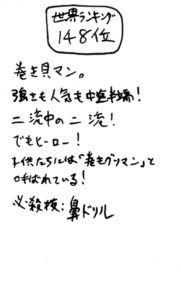 世界ランキング
148位
巻き貝マン。
強さも人気も中途半端!
二流中の二流!
でもヒーロー!
子供たちには「巻きグソマン」と
呼ばれている!
必殺技:鼻ドリル